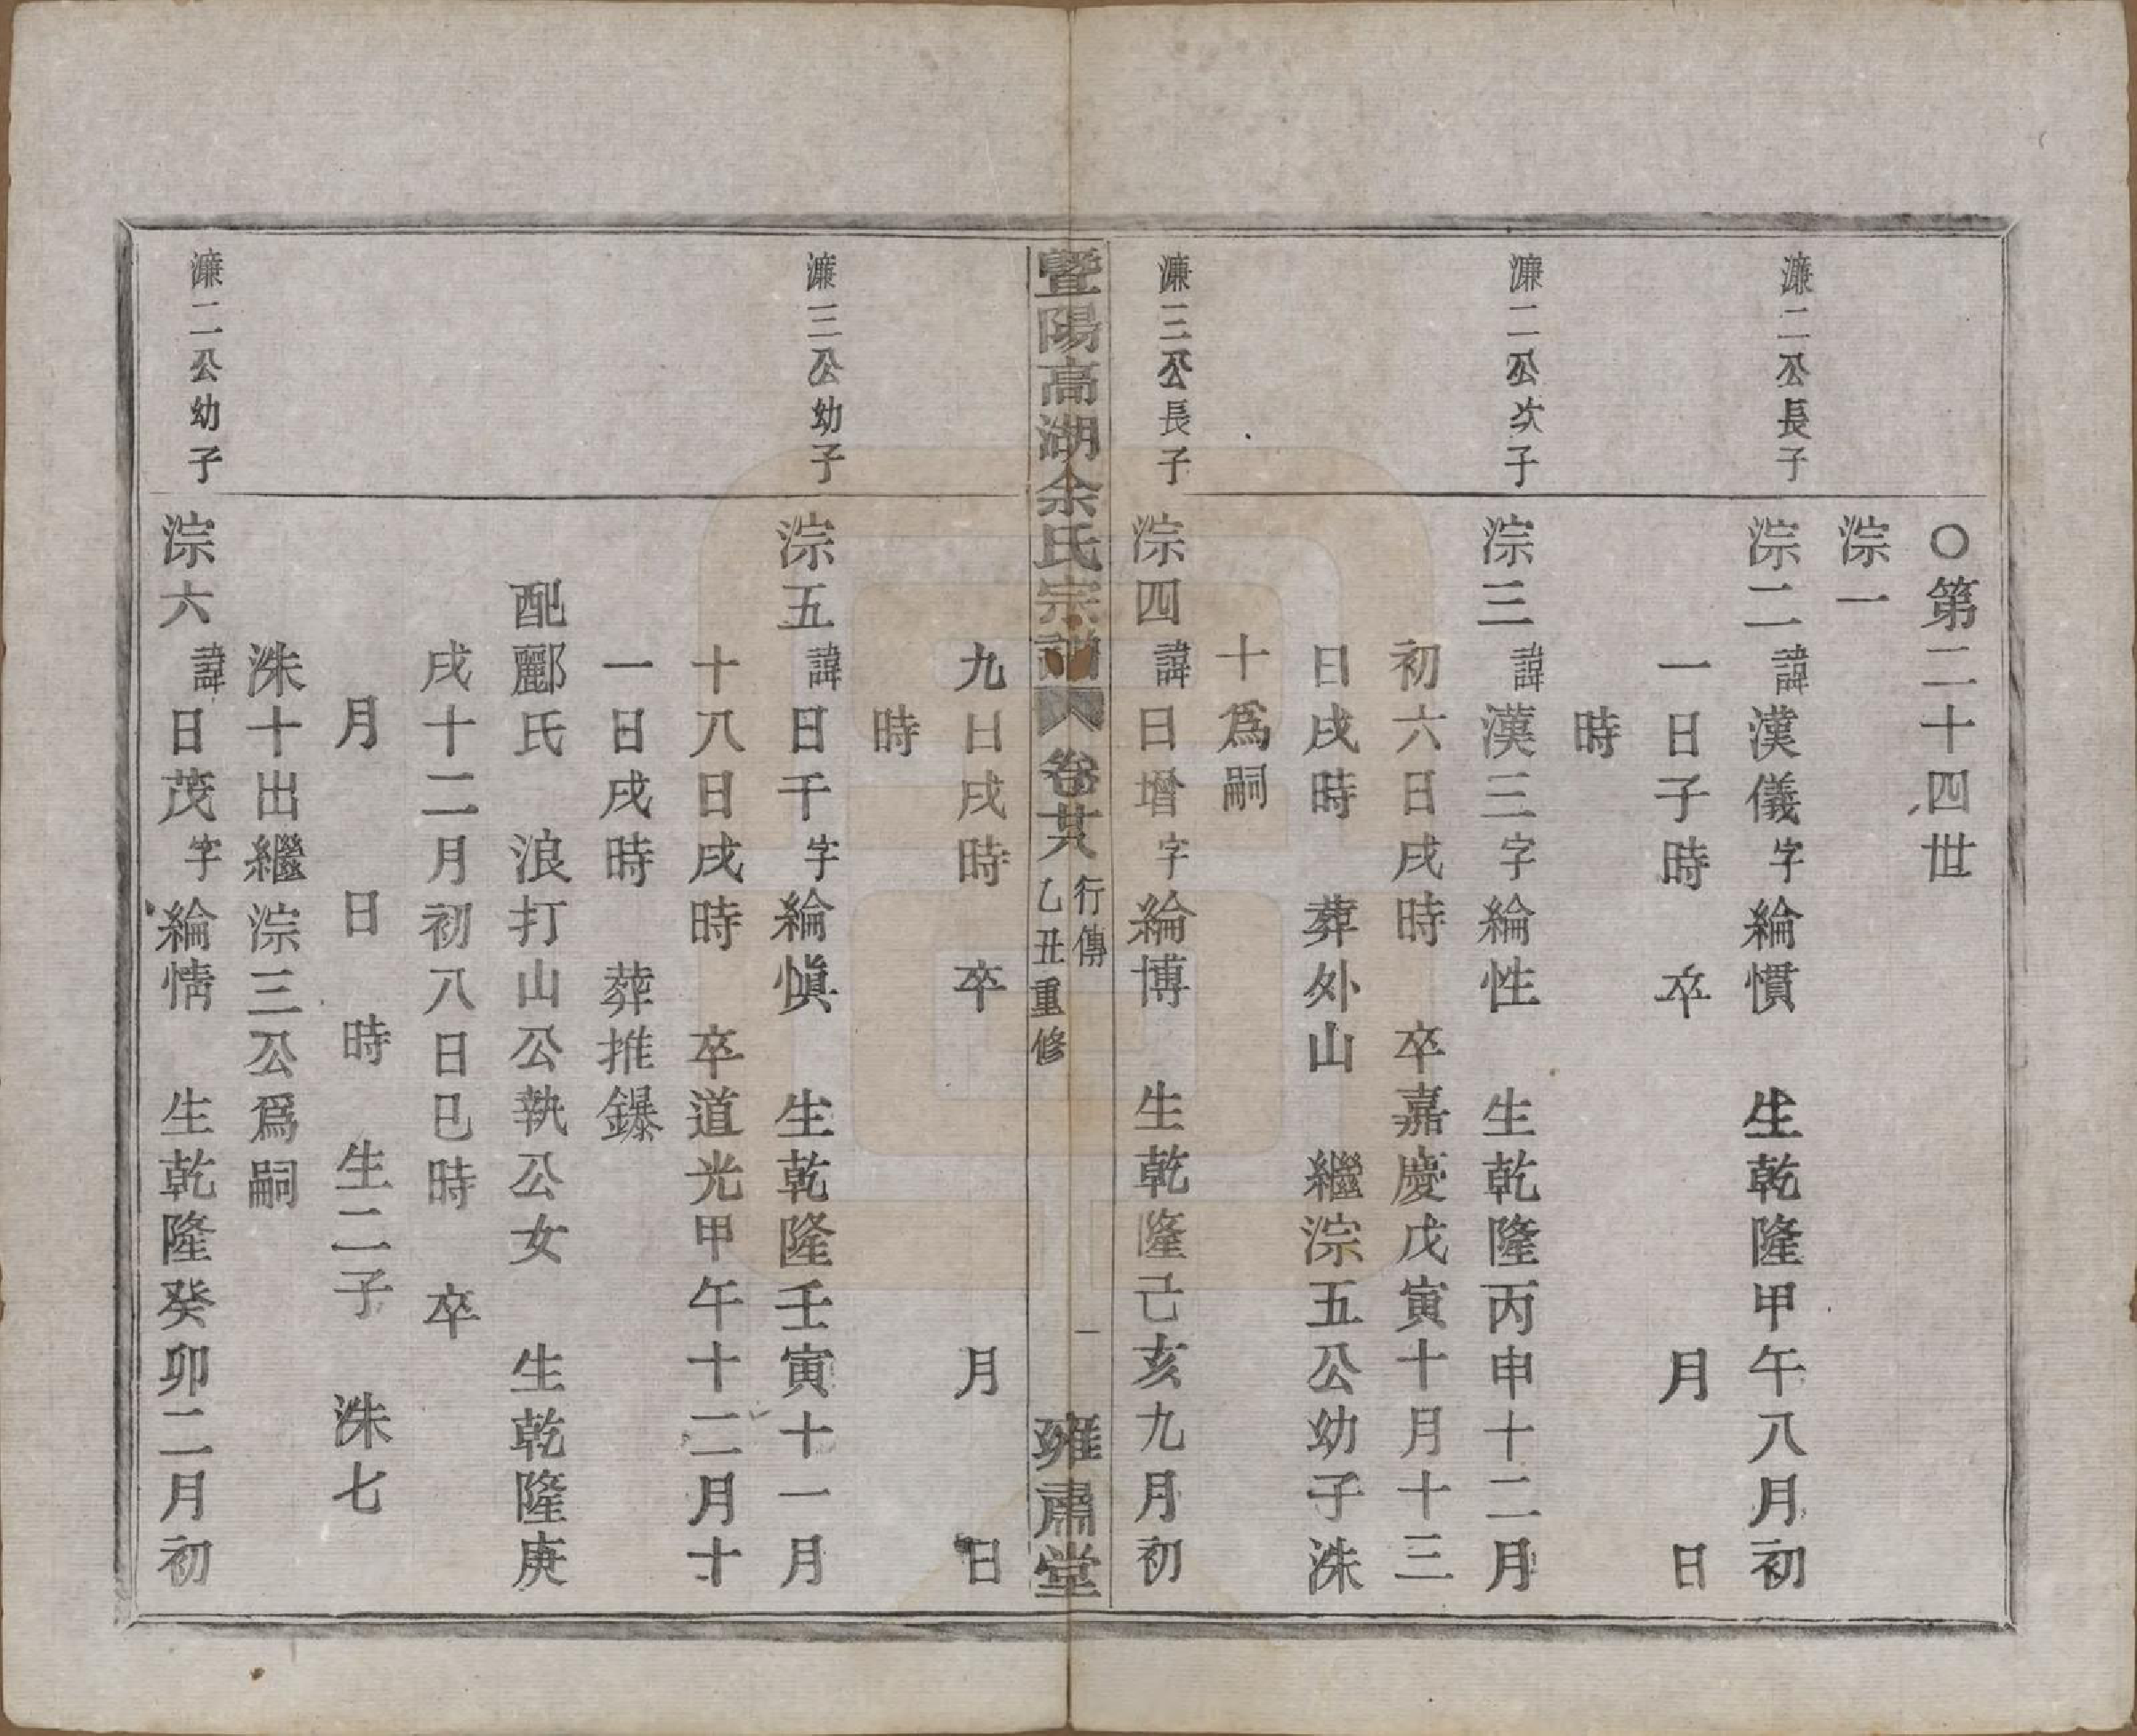 ○第二十四世
淙一
濂二公長子
淙二諱漢儀字綸慣　生乾隆甲午八月初
一日子時　卒　月　日
時
濂二公次子
淙三諱漢三字綸性　生乾隆丙申十二月
初六日戌時　卒嘉慶戊寅十月十三
日戌時　葬外山　繼淙五公幼子洙
十爲嗣
濂三公長子
淙四諱日增字綸博　生乾隆己亥九月初
暨陽高湖余氏宗譜
卷廿八
行傳
乙丑重修
一
雍肅堂
九日戌時　卒　月　日
時
濂三公幼子
淙五諱日千字綸愼　生乾隆壬寅十一月
十八日戌時　卒道光甲午十二月十
一日戌時　葬推鑤
配酈氏　浪打山公執公女　生乾隆庚
戌十二月初八日巳時　卒
月　日　時　生二子　洙七
洙十出繼淙三公爲嗣
濂二公幼子
淙六諱日茂字綸情　生乾隆癸卯二月初